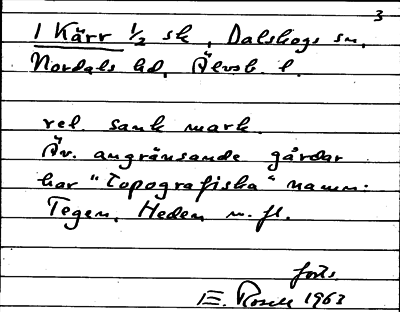 3
1 Kärr 1/2 sk, Dalskogs sn,
Nordals hd, Älvsb. l.
rel. sank mark.
Äv. angränsande gårdar
har "topografiska" namn:
Tegen, Heden m. fl.
forts
E. Rosell 1963